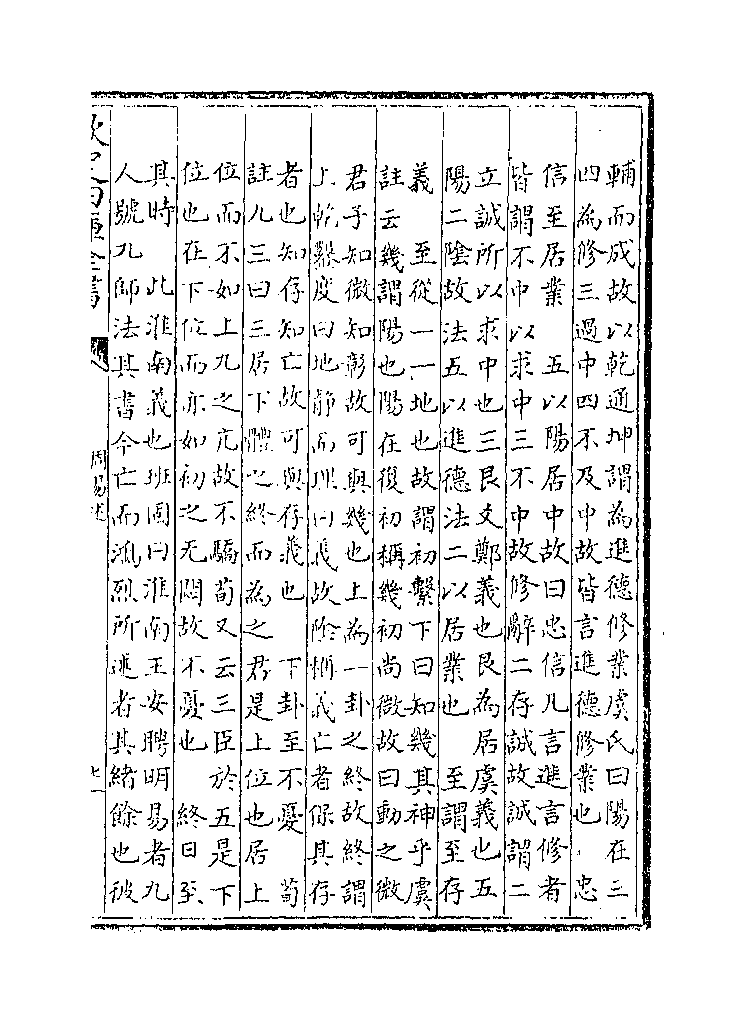 輔而成故以乾通坤謂為進德修業虞氏曰陽在三
四為修三過中四不及中故皆言進德修業也 忠
信至居業 五以陽居中故曰忠信凡言進言修者
皆謂不中以求中三不中故修辭二存誠故誠謂二
立誠所以求中也三艮爻鄭義也艮為居虞義也五
陽二陰故法五以進德法二以居業也 至謂至存
義 至從一一地也故謂初繫下曰知幾其神乎虞
註云幾謂陽也陽在復初稱幾初尚微故曰動之微
君子知微知彰故可與幾也上為一卦之終故終謂
上乾鑿度曰地静而理曰義故陰稱義亡者保其存
者也知存知亡故可與存義也 下卦至不憂 荀
註九三曰三居下體之終而為之君是上位也居上
位而不如上九之亢故不驕荀又云三臣於五是下
位也在下位而亦如初之无悶故不憂也 終日至
其時 此淮南義也班固曰淮南王安聘明易者九
人號九師法其書今亡而鴻烈所述者其緒餘也彼
欽定四庫全書
周易述